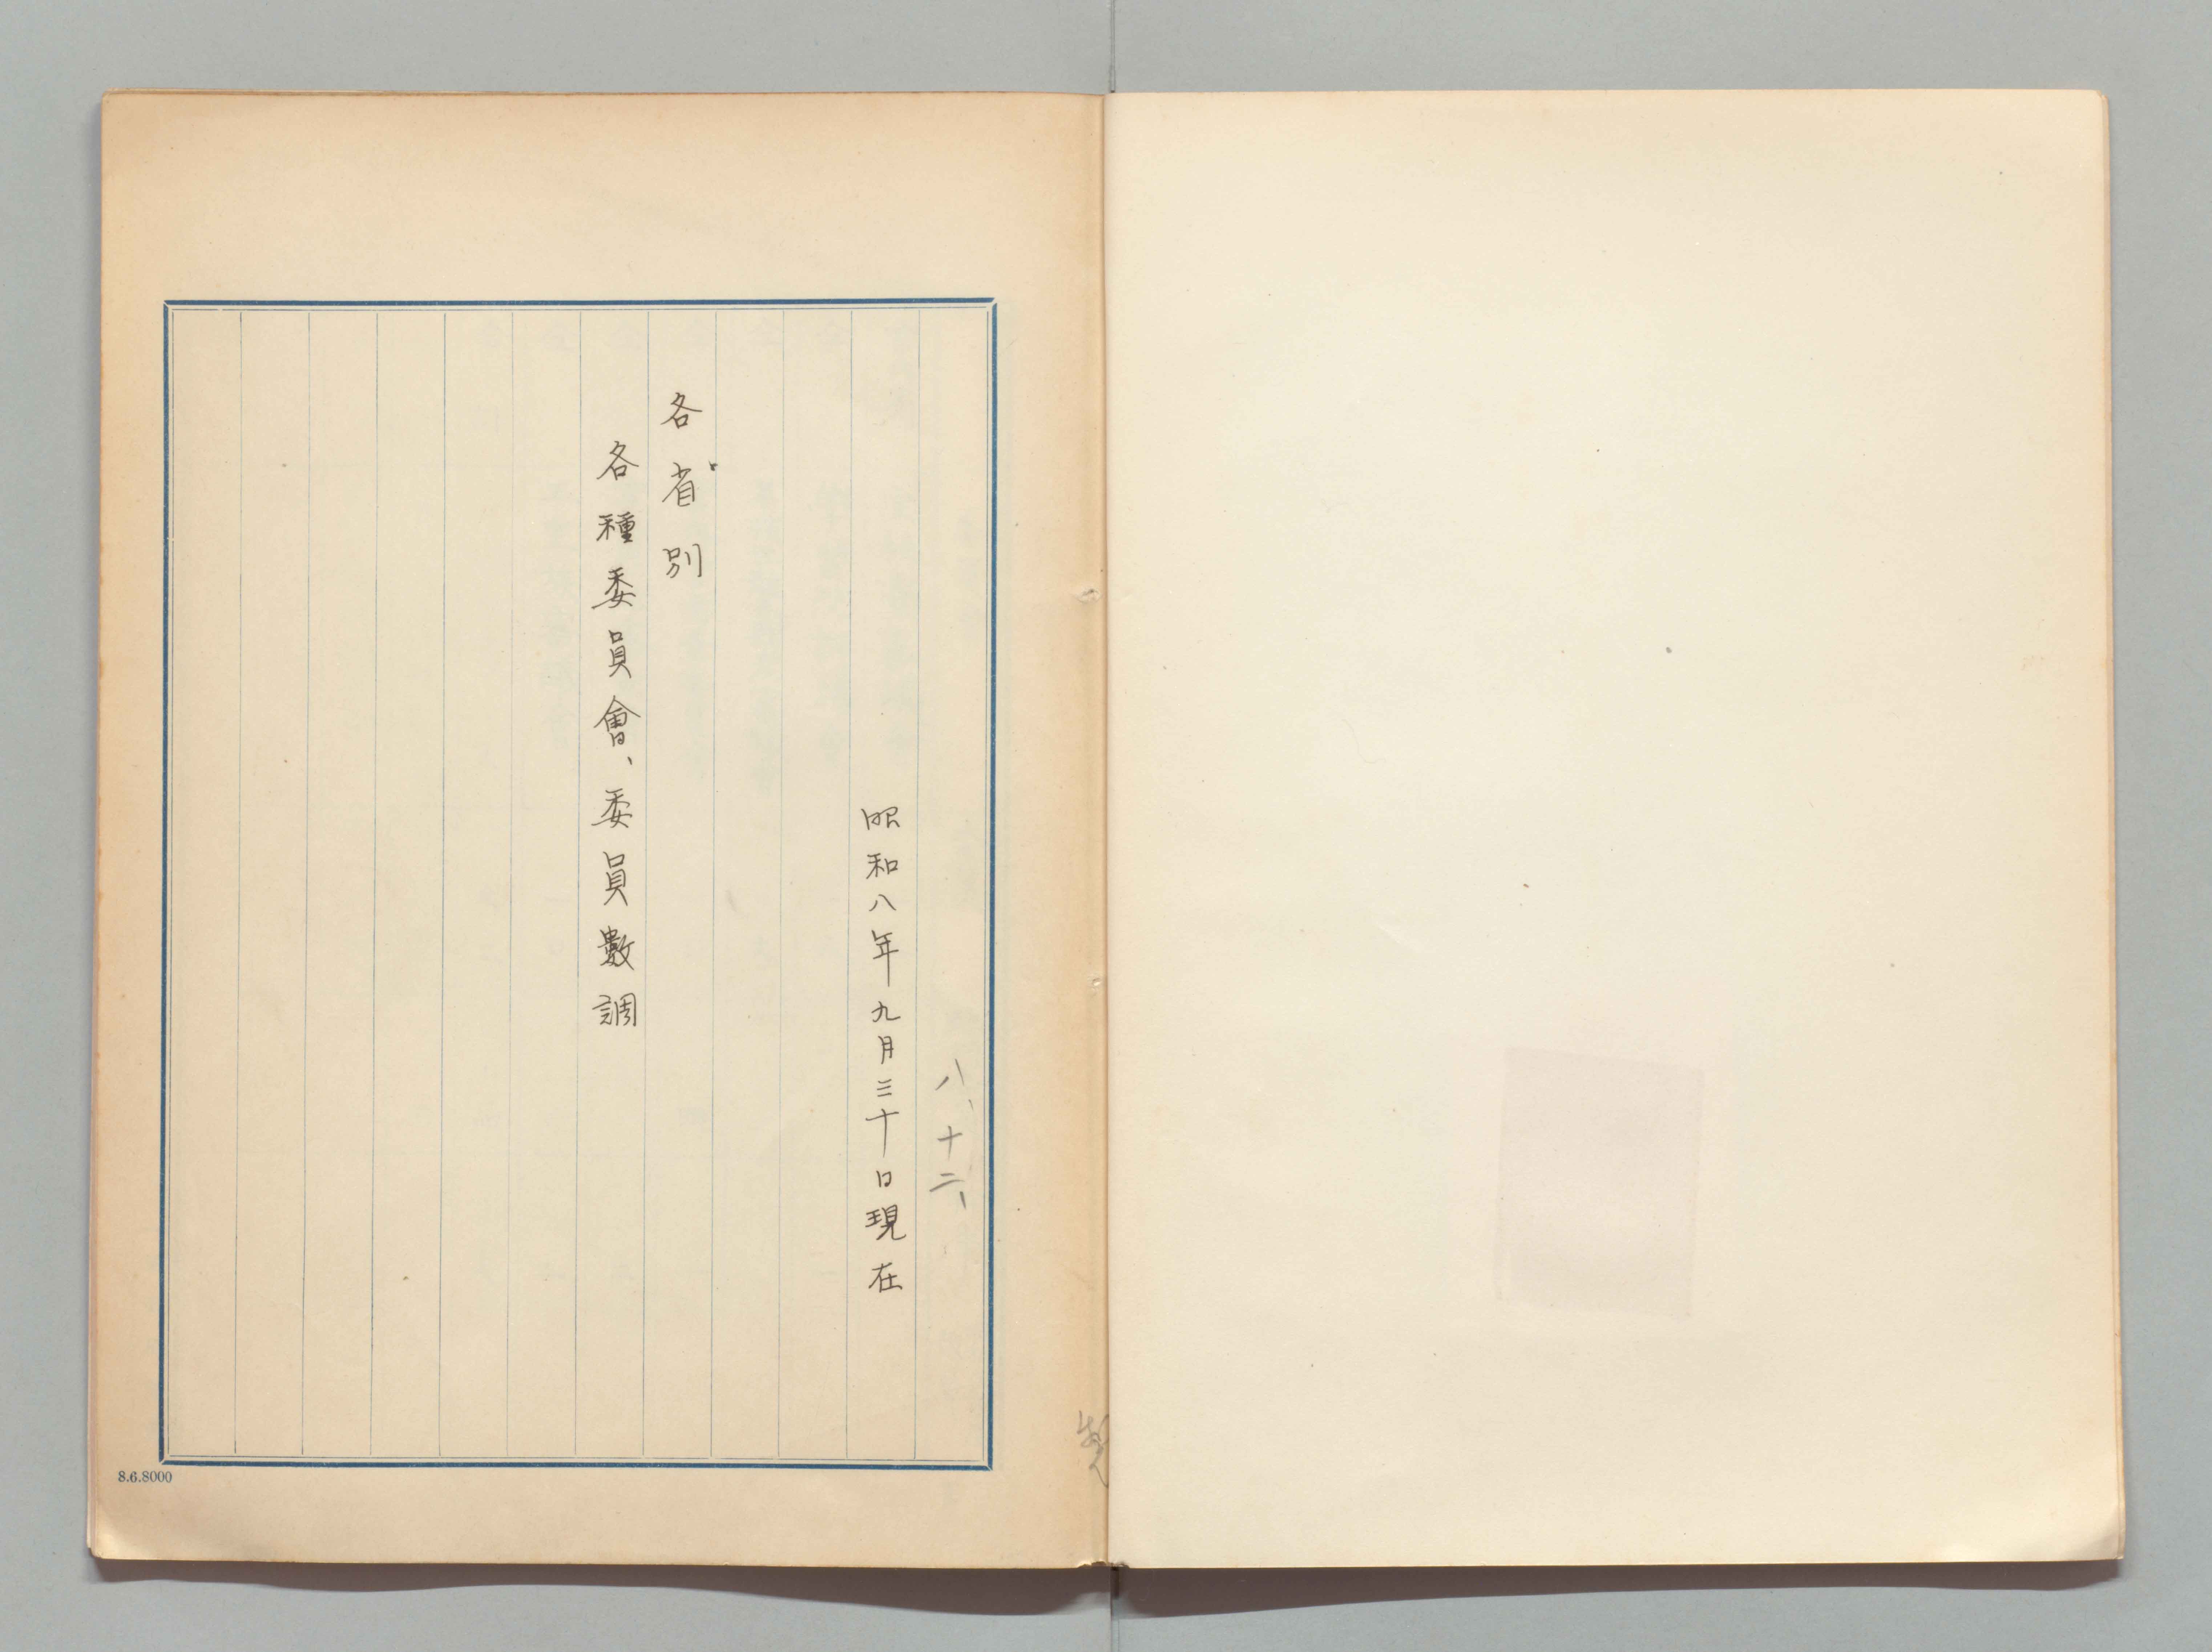 八、十二、
昭和八年九月三十日現在
各省別
各種委員會、委員數調
8.6.8000